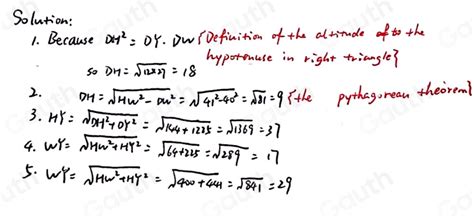 Solution:
1. Because DH² = DY · DW {Definition of the altitude of to the
hypotenuse in right triangle}
so DH = √12×27 = 18
2. DH = √HW² - DW² = √41²-40² = √81 = 9 {the pythagorean theorem}
3. HY = √DH²+DY² = √144+1225 = √1369 = 37
4. WY = √HW²+HY² = √64+225 = √289 = 17
5. WY = √HW²+HY² = √400+441 = √841 = 29